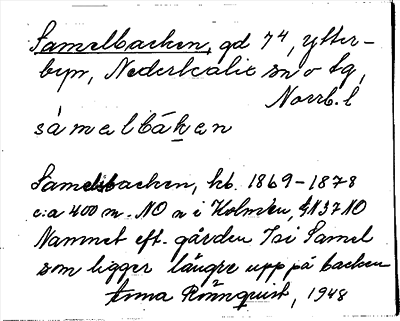 Samelbacken, gd 74, Ytter-
byn, Nederkalix sn o tg,
Norrb. l
sámelbák̲en
Samelsbacken, hb. 1869-1878
c:a 400 m. NO n i Holmen, GN37NO
Namnet eft. gården Isi Samel
som ligger längre upp på backen
Anna Rönnquist, 1948